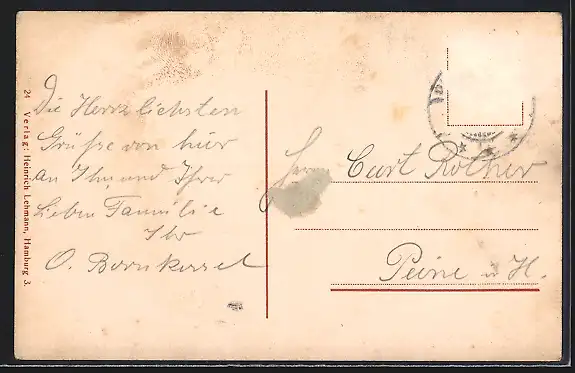 Die Herrzlichsten
Grüße von hier
an Ihn und Ihrer
Lieben Familie
Ihr
O. Bornkessel
Herrn Curt Rother
Peine i. H.
24 Verlag: Heinrich Lehmann, Hamburg 3.